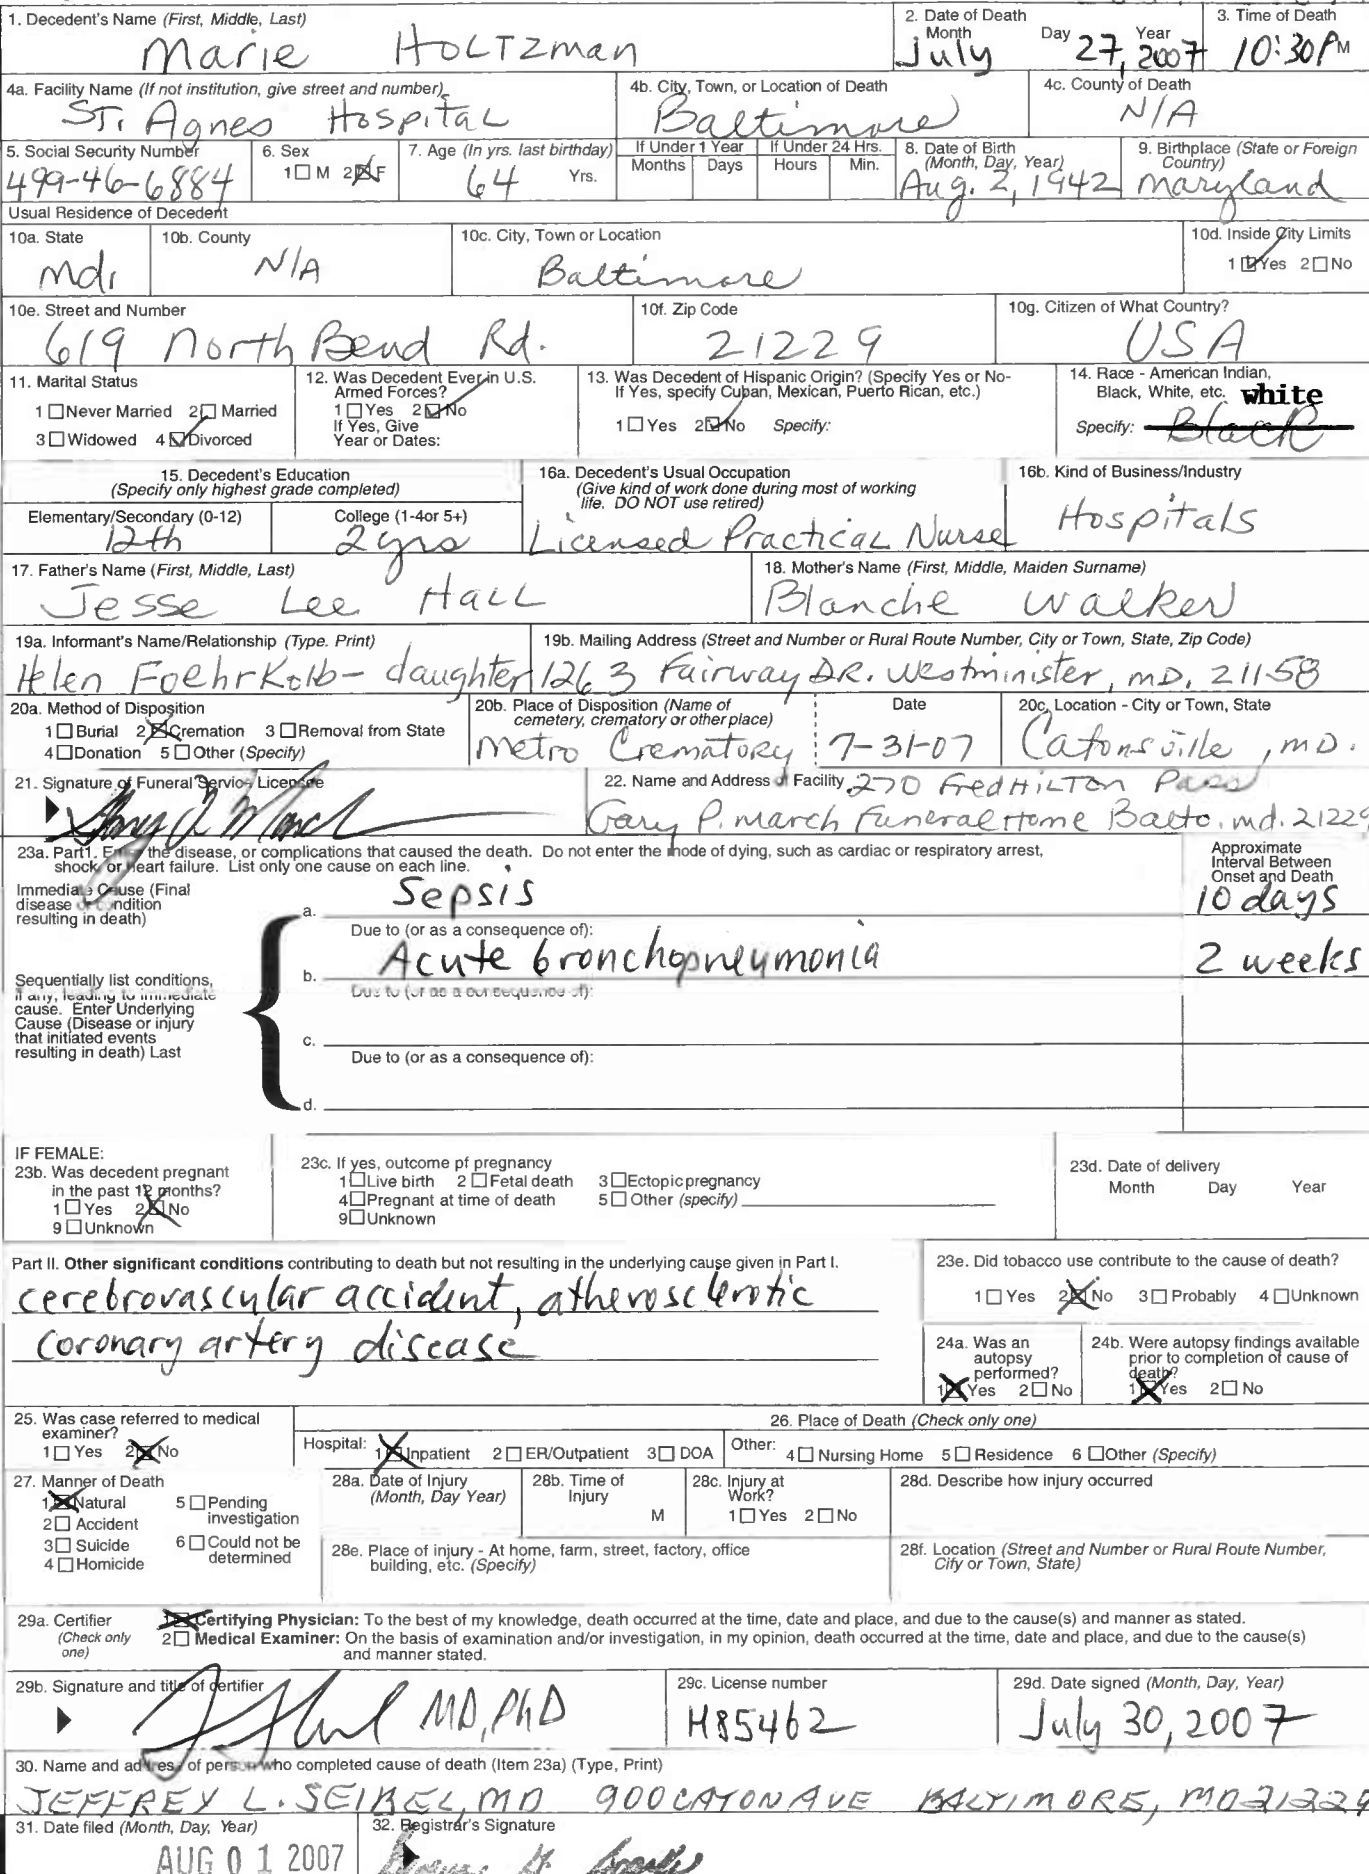 1. Decedent's Name (First, Middle, Last)
Marie HOLTZman
2. Date of Death
Month Day Year
July 27, 2007
3. Time of Death
10:30P M
4a. Facility Name (If not institution, give street and number)
ST. Agnes Hospital
4b. City, Town, or Location of Death
Baltimore
4c. County of Death
N/A
5. Social Security Number
499-46-6884
6. Sex
1 M 2 F
7. Age (In yrs. last birthday)
64 Yrs.
If Under 1 Year
Months Days
If Under 24 Hrs.
Hours Min.
8. Date of Birth
(Month, Day, Year)
Aug. 2, 1942
9. Birthplace (State or Foreign
Country)
Maryland
Usual Residence of Decedent
10a. State
Md.
10b. County
N/A
10c. City, Town or Location
Baltimore
10d. Inside City Limits
1 Yes 2 No
10e. Street and Number
619 North Bend Rd.
10f. Zip Code
21229
10g. Citizen of What Country?
USA
11. Marital Status
1 Never Married 2 Married
3 Widowed 4 Divorced
12. Was Decedent Ever in U.S.
Armed Forces?
1 Yes 2 No
If Yes, Give
Year or Dates:
13. Was Decedent of Hispanic Origin? (Specify Yes or No-
If Yes, specify Cuban, Mexican, Puerto Rican, etc.)
1 Yes 2 No Specify:
14. Race - American Indian,
Black, White, etc. white
Specify: Black
15. Decedent's Education
(Specify only highest grade completed)
Elementary/Secondary (0-12)
12th
College (1-4or 5+)
2 yrs
16a. Decedent's Usual Occupation
(Give kind of work done during most of working
life. DO NOT use retired)
Licensed Practical Nurse
16b. Kind of Business/Industry
Hospitals
17. Father's Name (First, Middle, Last)
Jesse Lee Hall
18. Mother's Name (First, Middle, Maiden Surname)
Blanche Walker
19a. Informant's Name/Relationship (Type. Print)
Helen FoehrKolb - daughter
19b. Mailing Address (Street and Number or Rural Route Number, City or Town, State, Zip Code)
1263 Fairway DR. Westminister, MD, 21158
20a. Method of Disposition
1 Burial 2 Cremation 3 Removal from State
4 Donation 5 Other (Specify)
20b. Place of Disposition (Name of
cemetery, crematory or other place)
Metro Crematory
Date
7-31-07
20c. Location - City or Town, State
Catonsville, MD.
21. Signature of Funeral Service Licensee
22. Name and Address of Facility 270 FredHILTON Pass
Gary P. March Funeral Home Balto. Md. 21229
23a. Part1. Enter the disease, or complications that caused the death. Do not enter the mode of dying, such as cardiac or respiratory arrest,
shock, or heart failure. List only one cause on each line.
Approximate
Interval Between
Onset and Death
Immediate Cause (Final
disease or condition
resulting in death)
a. Sepsis 10 days
Due to (or as a consequence of):
b. Acute bronchopneumonia 2 weeks
Due to (or as a consequence of):
Sequentially list conditions,
if any, leading to immediate
cause. Enter Underlying
Cause (Disease or injury
that initiated events
resulting in death) Last
c.
Due to (or as a consequence of):
d.
IF FEMALE:
23b. Was decedent pregnant
in the past 12 months?
1 Yes 2 No
9 Unknown
23c. If yes, outcome pf pregnancy
1 Live birth 2 Fetal death 3 Ectopic pregnancy
4 Pregnant at time of death 5 Other (specify)
9 Unknown
23d. Date of delivery
Month Day Year
Part II. Other significant conditions contributing to death but not resulting in the underlying cause given in Part I.
cerebrovascular accident, atherosclerotic
coronary artery disease
23e. Did tobacco use contribute to the cause of death?
1 Yes 2 No 3 Probably 4 Unknown
24a. Was an
autopsy
performed?
1 Yes 2 No
24b. Were autopsy findings available
prior to completion of cause of
death?
1 Yes 2 No
25. Was case referred to medical
examiner?
1 Yes 2 No
26. Place of Death (Check only one)
Hospital: 1 Inpatient 2 ER/Outpatient 3 DOA Other: 4 Nursing Home 5 Residence 6 Other (Specify)
27. Manner of Death
1 Natural 5 Pending
investigation
2 Accident
3 Suicide 6 Could not be
determined
4 Homicide
28a. Date of Injury
(Month, Day Year)
28b. Time of
Injury
M
28c. Injury at
Work?
1 Yes 2 No
28d. Describe how injury occurred
28e. Place of injury - At home, farm, street, factory, office
building, etc. (Specify)
28f. Location (Street and Number or Rural Route Number,
City or Town, State)
29a. Certifier
(Check only
one)
1 Certifying Physician: To the best of my knowledge, death occurred at the time, date and place, and due to the cause(s) and manner as stated.
2 Medical Examiner: On the basis of examination and/or investigation, in my opinion, death occurred at the time, date and place, and due to the cause(s)
and manner stated.
29b. Signature and title of certifier
MD, PhD
29c. License number
H85462
29d. Date signed (Month, Day, Year)
July 30, 2007
30. Name and address of person who completed cause of death (Item 23a) (Type, Print)
JEFFREY L. SEIBEL, MD 900 CATON AVE BALTIMORE, MD 21229
31. Date filed (Month, Day, Year)
AUG 0 1 2007
32. Registrar's Signature